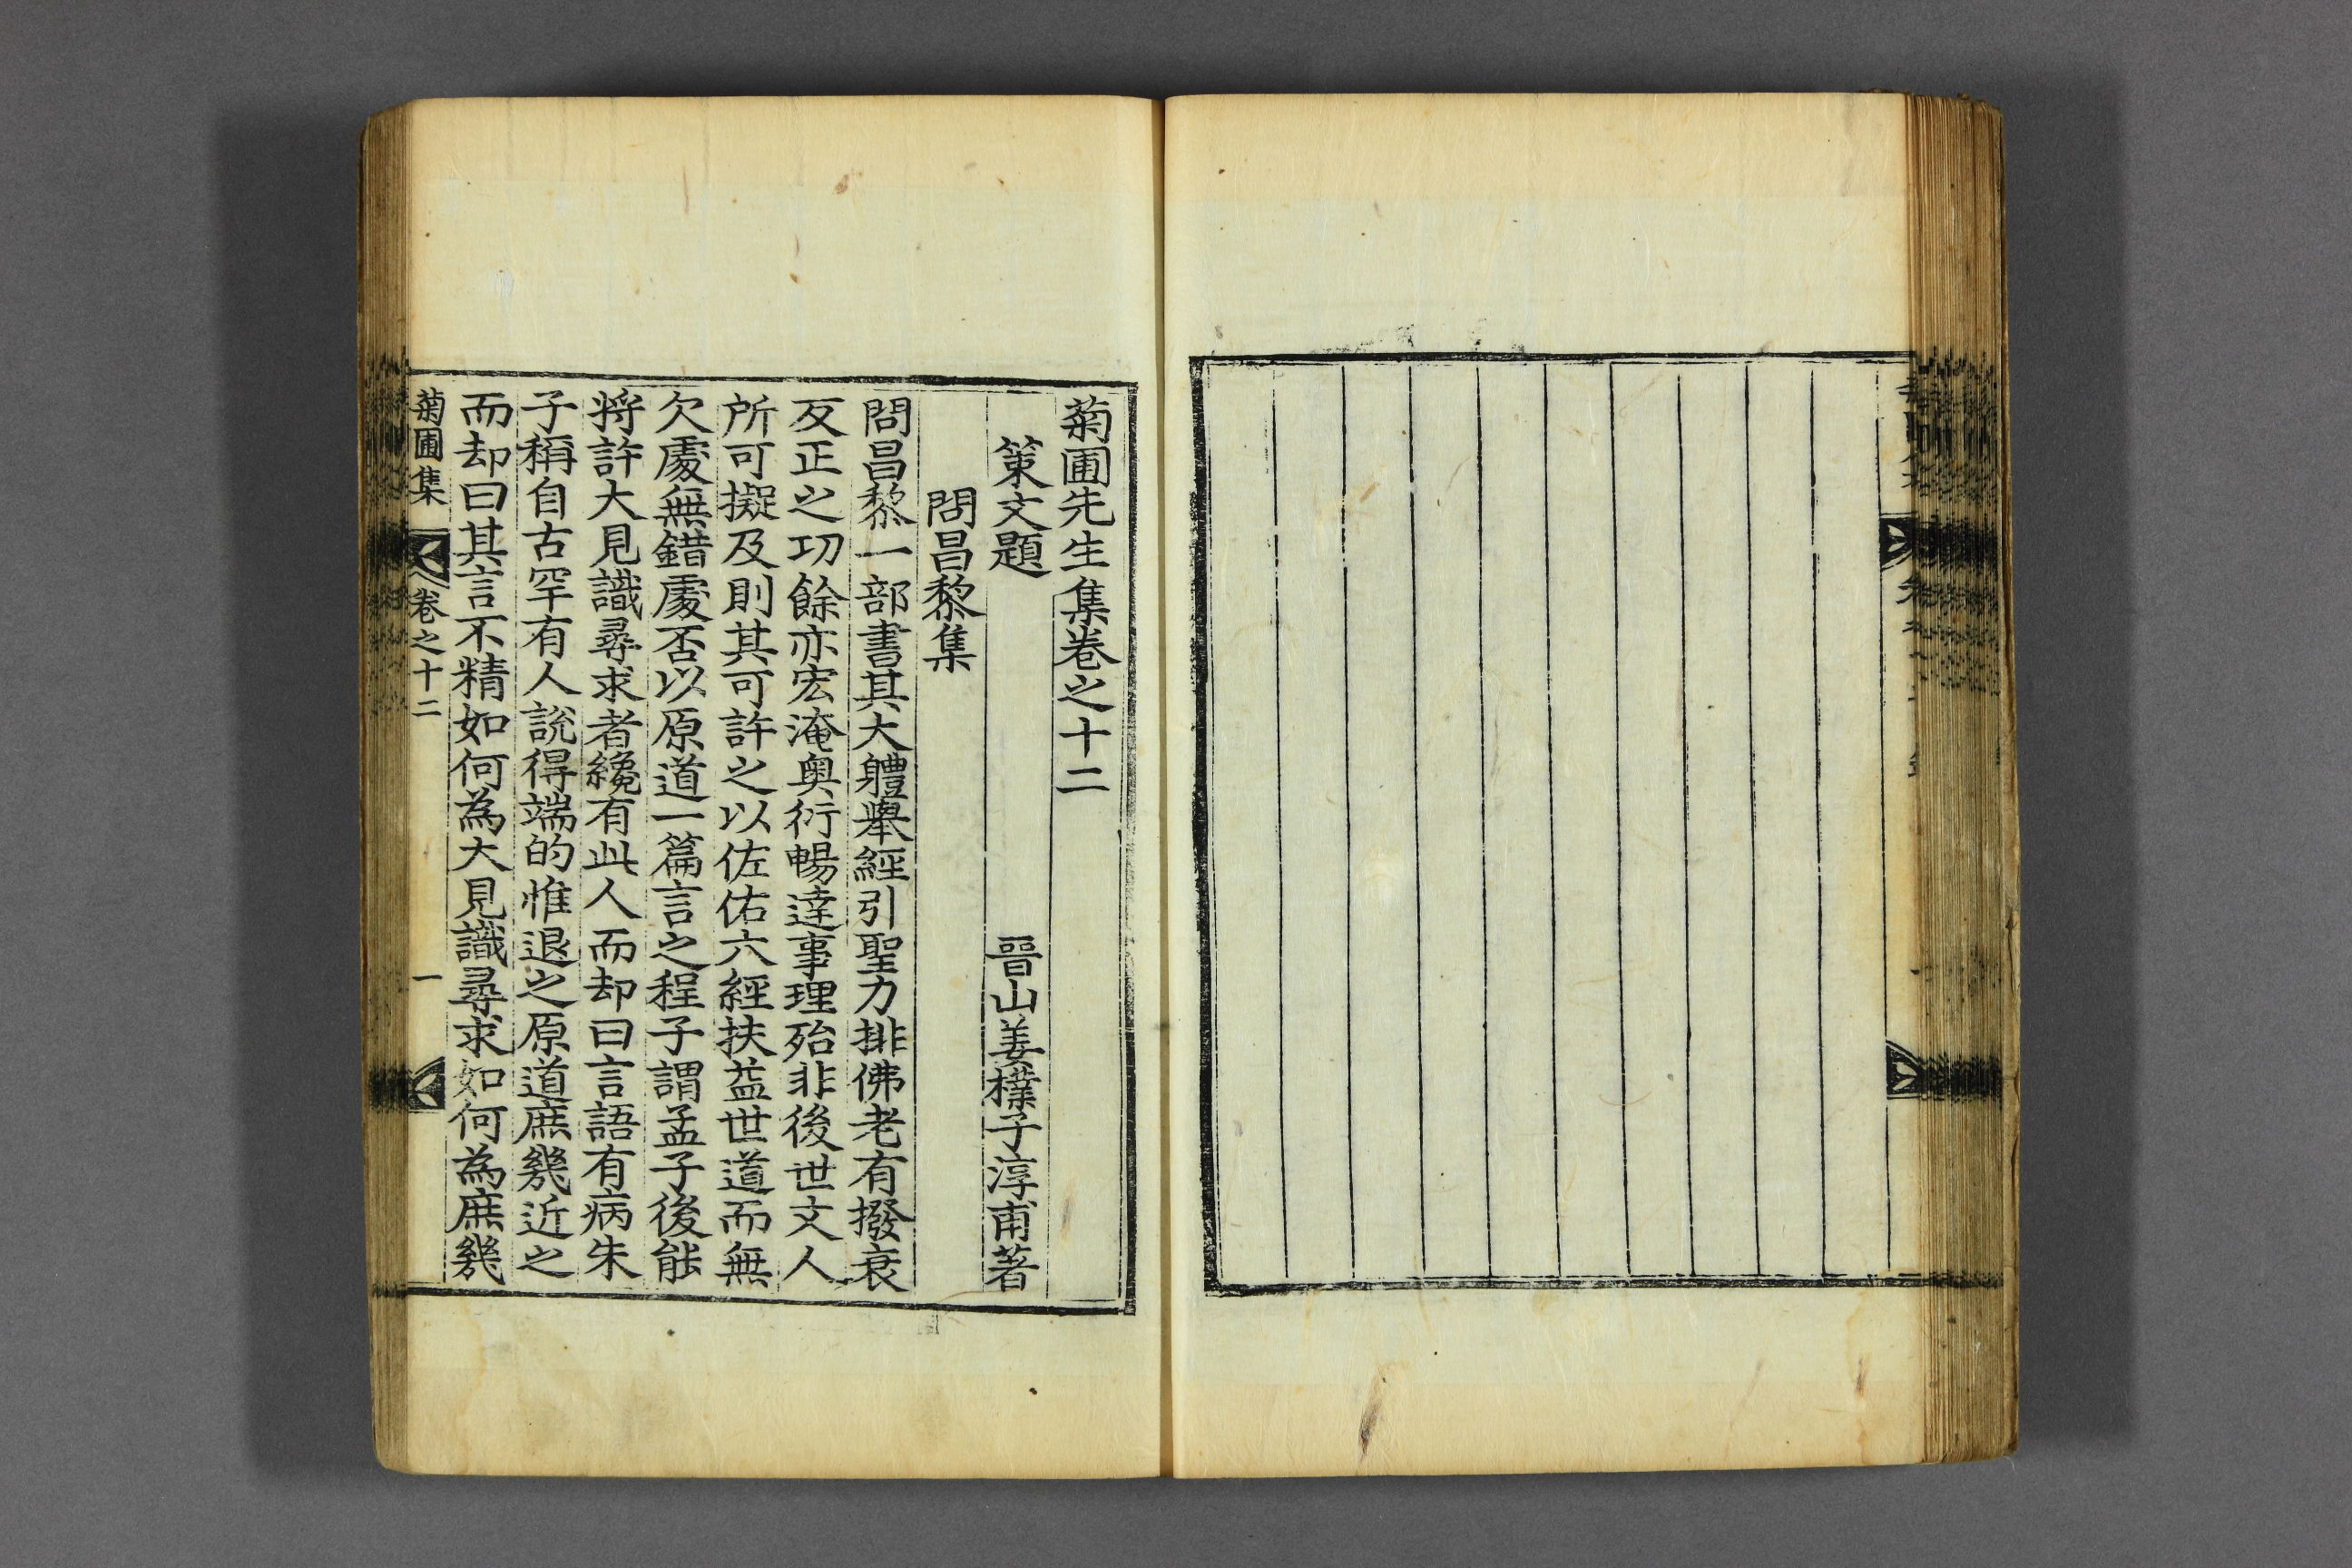 菊圃先生集卷之十二
策文題　晉山姜樸子淳甫著
問昌黎集
問昌黎一部書其大體擧經引聖力排佛老有撥衰
反正之功餘亦宏淹奧衍暢達事理殆非後世文人
所可擬及則其可許之以佐佑六經扶益世道而無
欠處無錯處否以原道一篇言之程子謂孟子後能
將許大見識尋求者纔有此人而却曰言語有病朱
子稱自古罕有人說得端的惟退之原道庶幾近之
而却曰其言不精如何為大見識尋求如何為庶幾
菊圃集　卷之十二　一